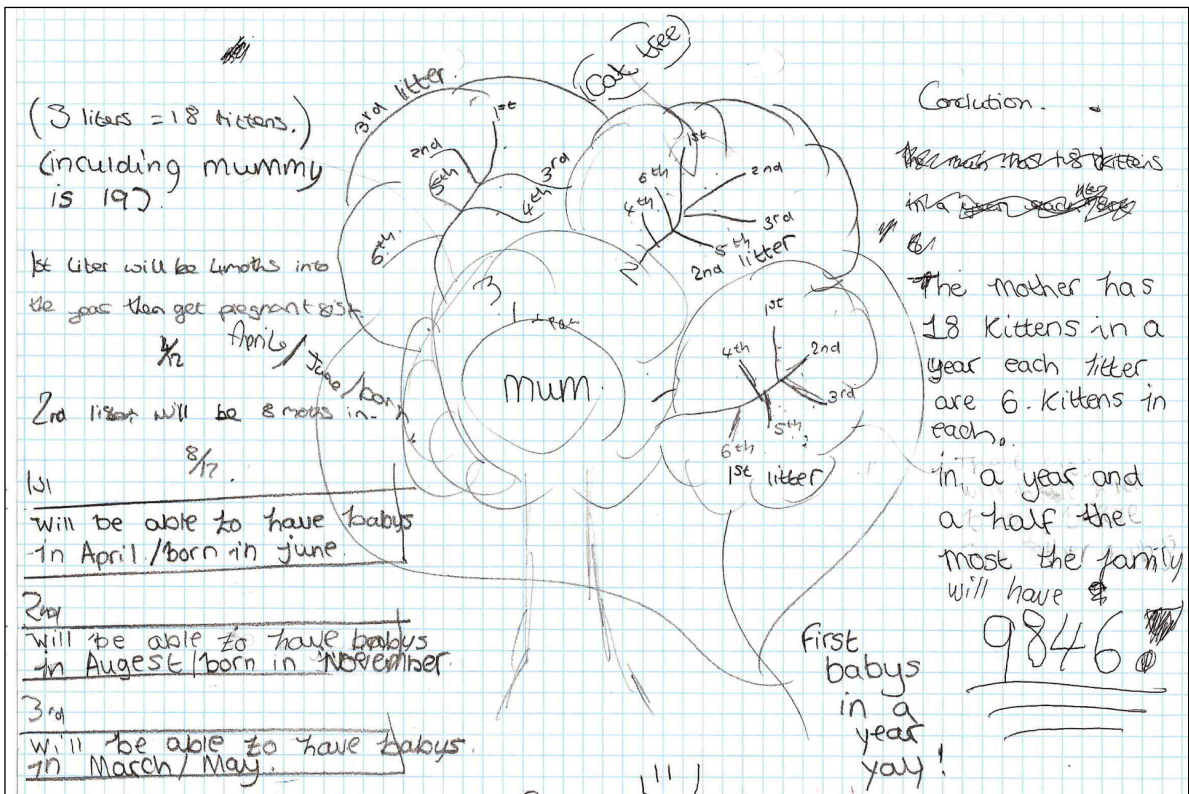 (3 liters = 18 kittens.)
(inculding mummy
is 19).
1st liter will be 4moths into
the year then get pregnant
4/12
Aprile/June/born
2nd litter will be 8 moths in.
8/12.
1st
will be able to have babys
in April./born in june.
2nd
will be able to have babys
in Augest/born in November.
3rd
will be able to have babys.
in March/May.
Cat tree
3rd litter.
1st
2nd
5th
3rd
4th
6th
1st
6th
2nd
4th
3rd
5th
2
2nd litter
3
1
mum
1st
4th
2nd
3rd
5th
6th
1st litter
First
babys
in a
year
yay!
Conclution.
The mother has
18 kittens in a
year each litter
are 6. kittens in
each.
in a year and
a half thee
most the family
will have
9846!